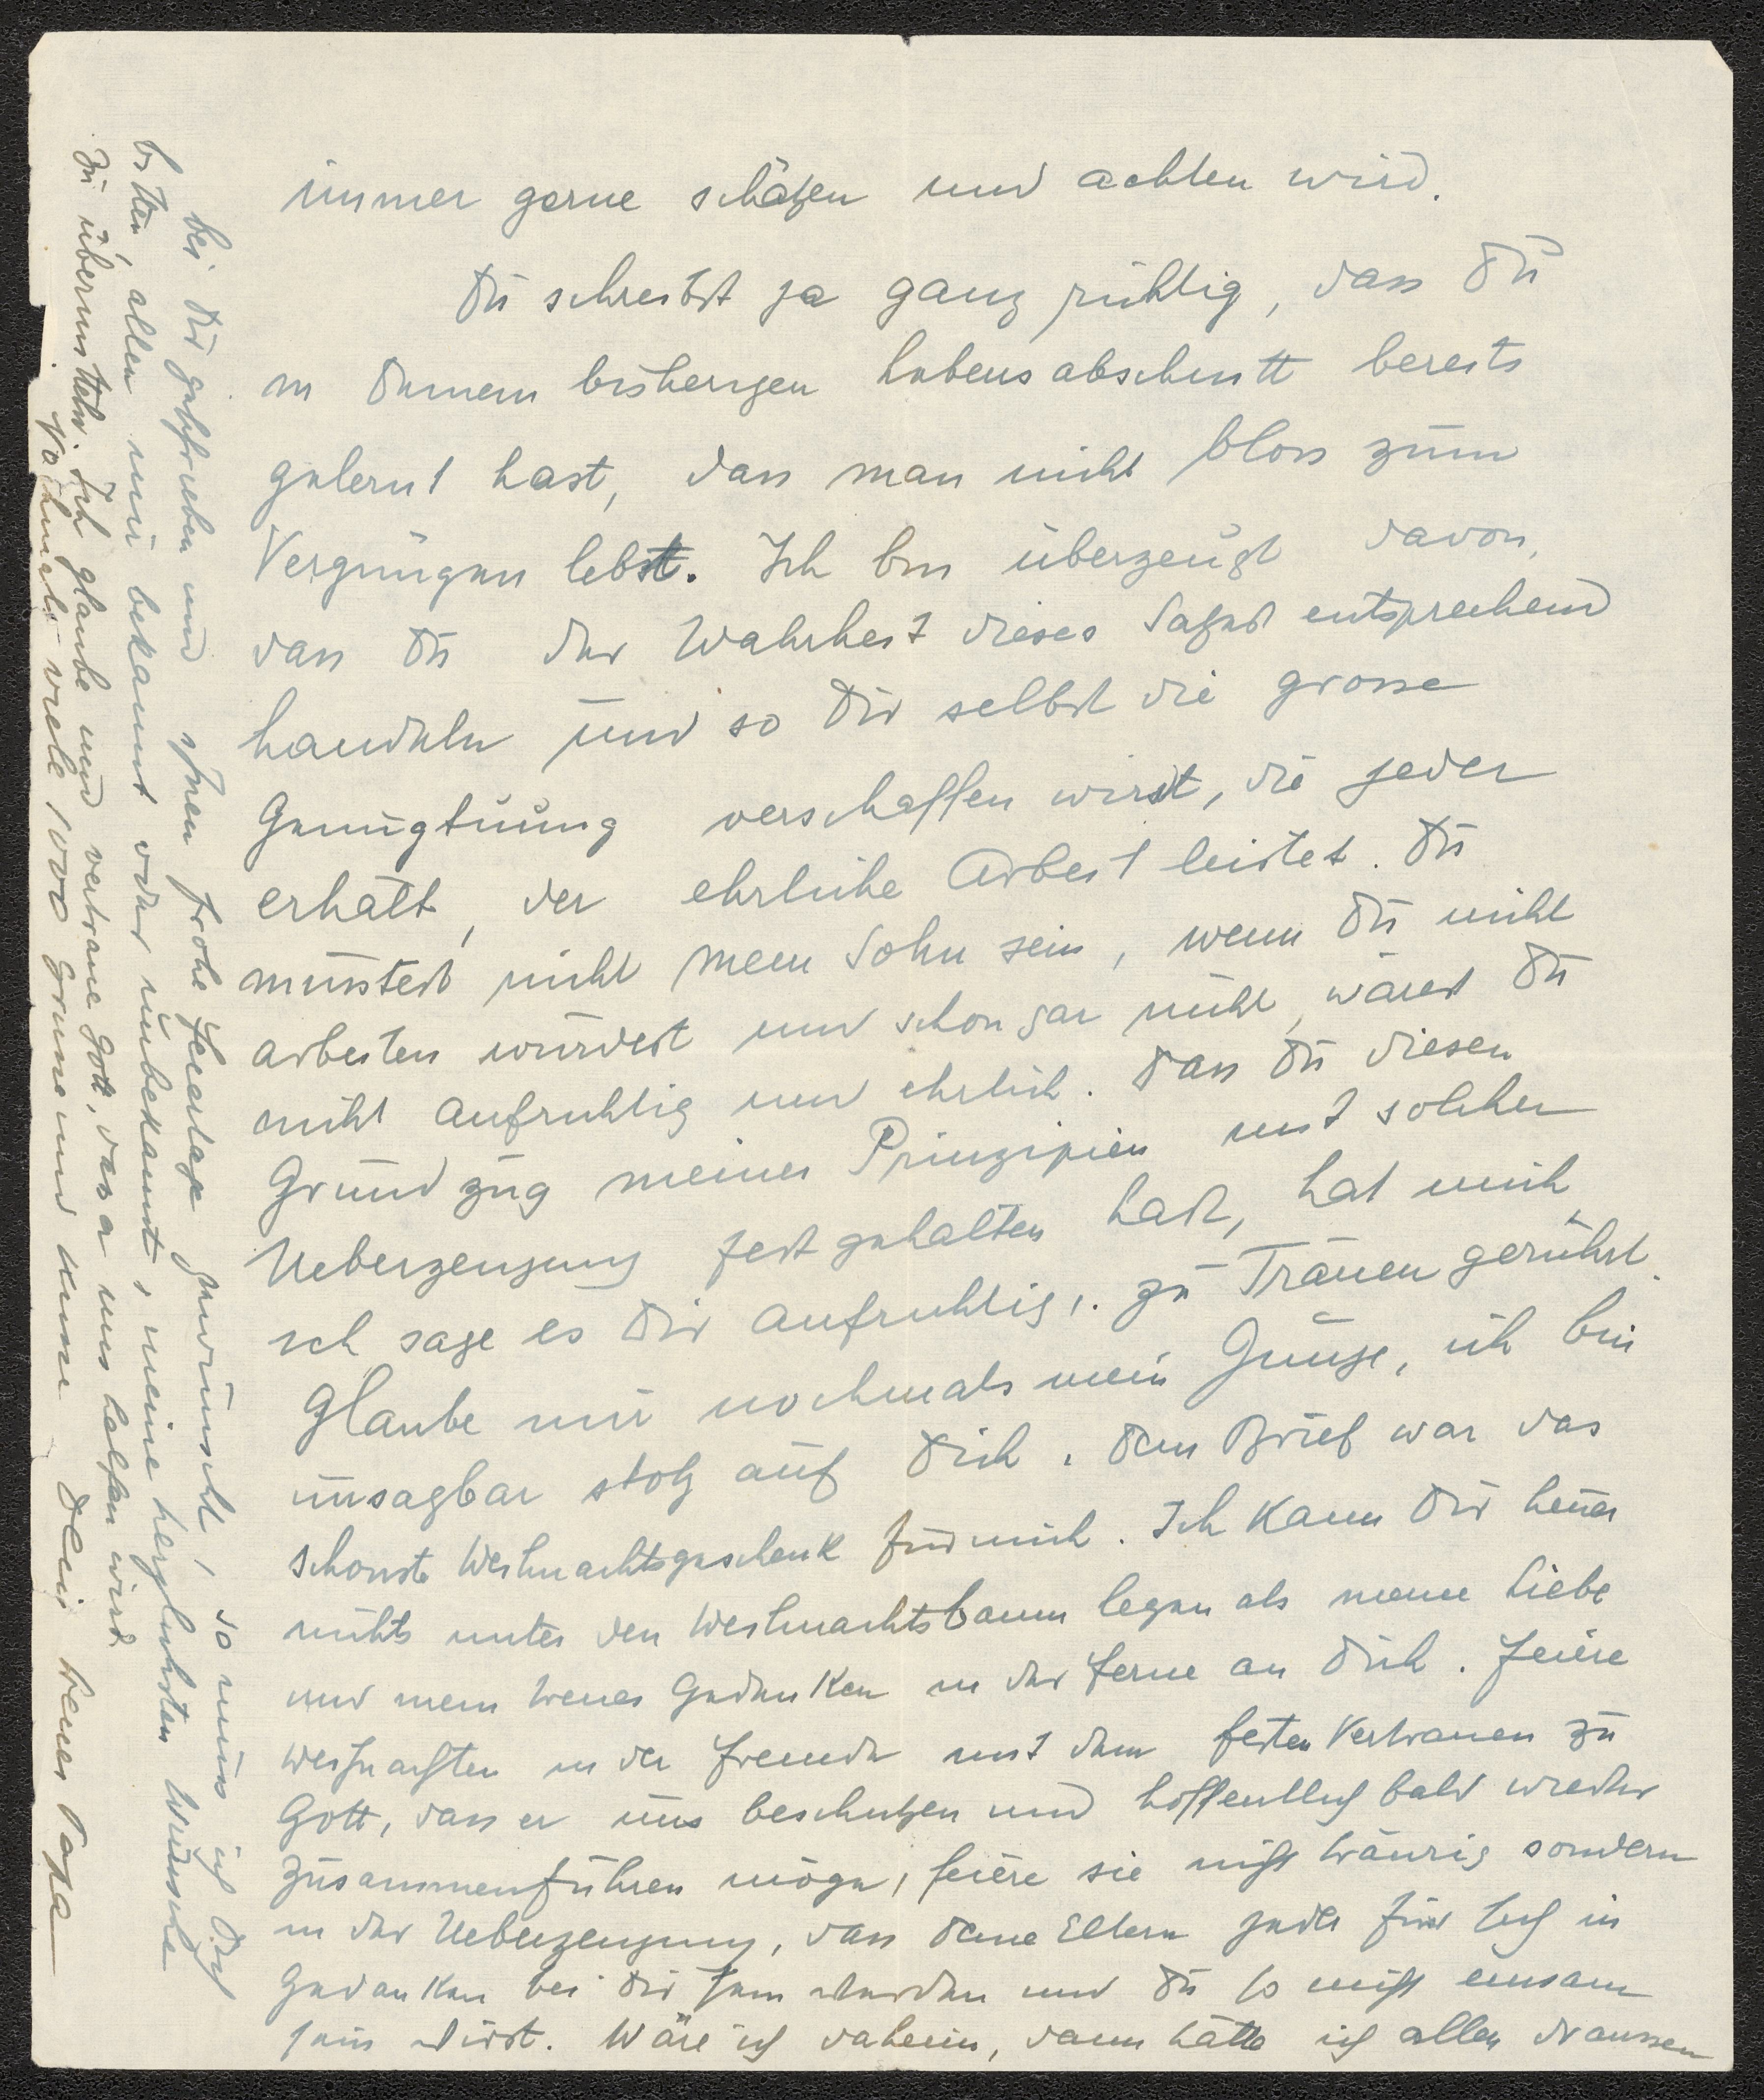 immer gerne schätzen und achten wird.
Du schreibst ja ganz richtig, dass Du
in Deinem bisherigen Lebensabschnitt bereits
gelernt hast, dass man nicht bloss zum
Vergnügen lebt. Ich bin überzeugt davon,
dass Du der Wahrheit dieses Satzes entsprechend
handeln und so Dir selbst die grosse
Genugtuung verschaffen wirst, die jeder
erhält, der ehrliche Arbeit leistet. Du
müsstest nicht mein Sohn sein, wenn Du nicht
arbeiten würdest und schon gar nicht, wärest Du
nicht aufrichtig und ehrlich. Dass Du diesen
Grundzug meiner Prinzipien mit solcher
Ueberzeugung festgehalten hast, hat mich,
ich sage es Dir aufrichtig, zu Tränen gerührt.
Glaube mir nochmals mein Junge, ich bin
unsagbar stolz auf Dich. Dein Brief war das
schönste Weihnachtsgeschenk für mich. Ich kann Dir heuer
nichts unter den Weihnachtsbaum legen als meine Liebe
und mein treues Gedenken in der Ferne an Dich. Feiere
Weihnachten in der Fremde mit dem festen Vertrauen zu
Gott, dass er uns beschützen und hoffentlich bald wieder
zusammenführen möge, feiere sie nicht traurig sondern
in der Ueberzeugung, dass Deine Eltern jeder für sich in
Gedanken bei Dir sein werden und Du so nicht einsam
sein wirst. Wäre ich daheim, dann hätte ich allen draussen
bei Dir geschrieben und ihnen frohe Feiertage gewünscht, so muss ich Dich
bitten, allen mir bekannt oder unbekannt, meine herzlichsten Wünsche
zu übermitteln. Ich glaube und vertraue Gott, dass er uns helfen wird.
Nochmals viele 1000 Grüsse und Küsse Dein treuer Papa